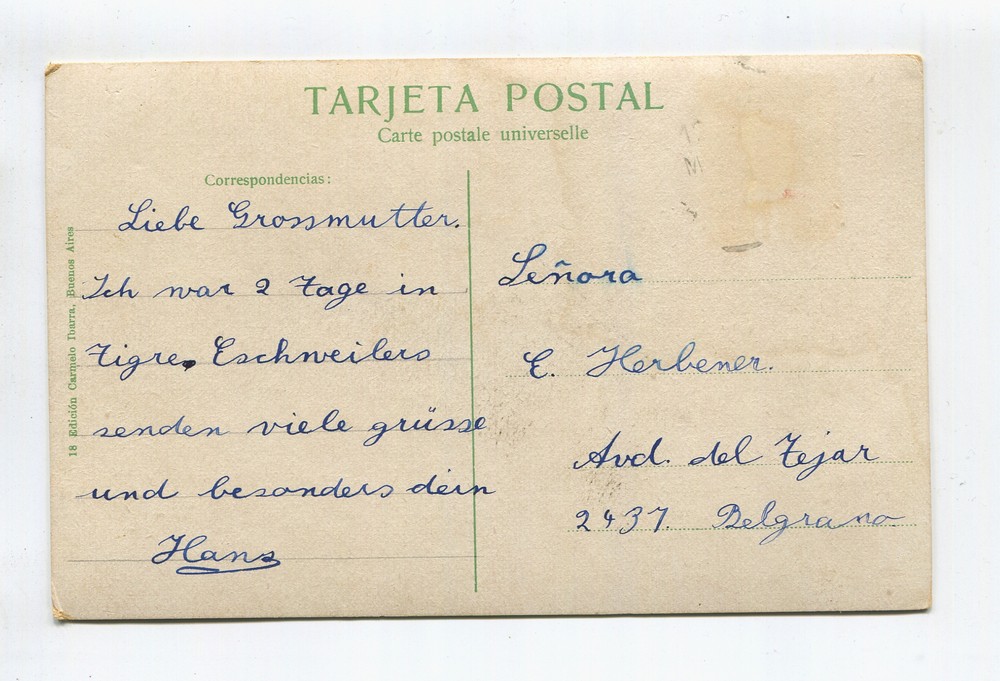 TARJETA POSTAL
Carte postale universelle
Correspondencias:
Liebe Grossmutter.
Ich war 2 Tage in
Tigre. Eschweilers
senden viele grüsse
und besonders dein
Hans
18 Edición Carmelo Ibarra, Buenos Aires
Señora
E. Herbener.
Avd. del Tejar
2437. Belgrano